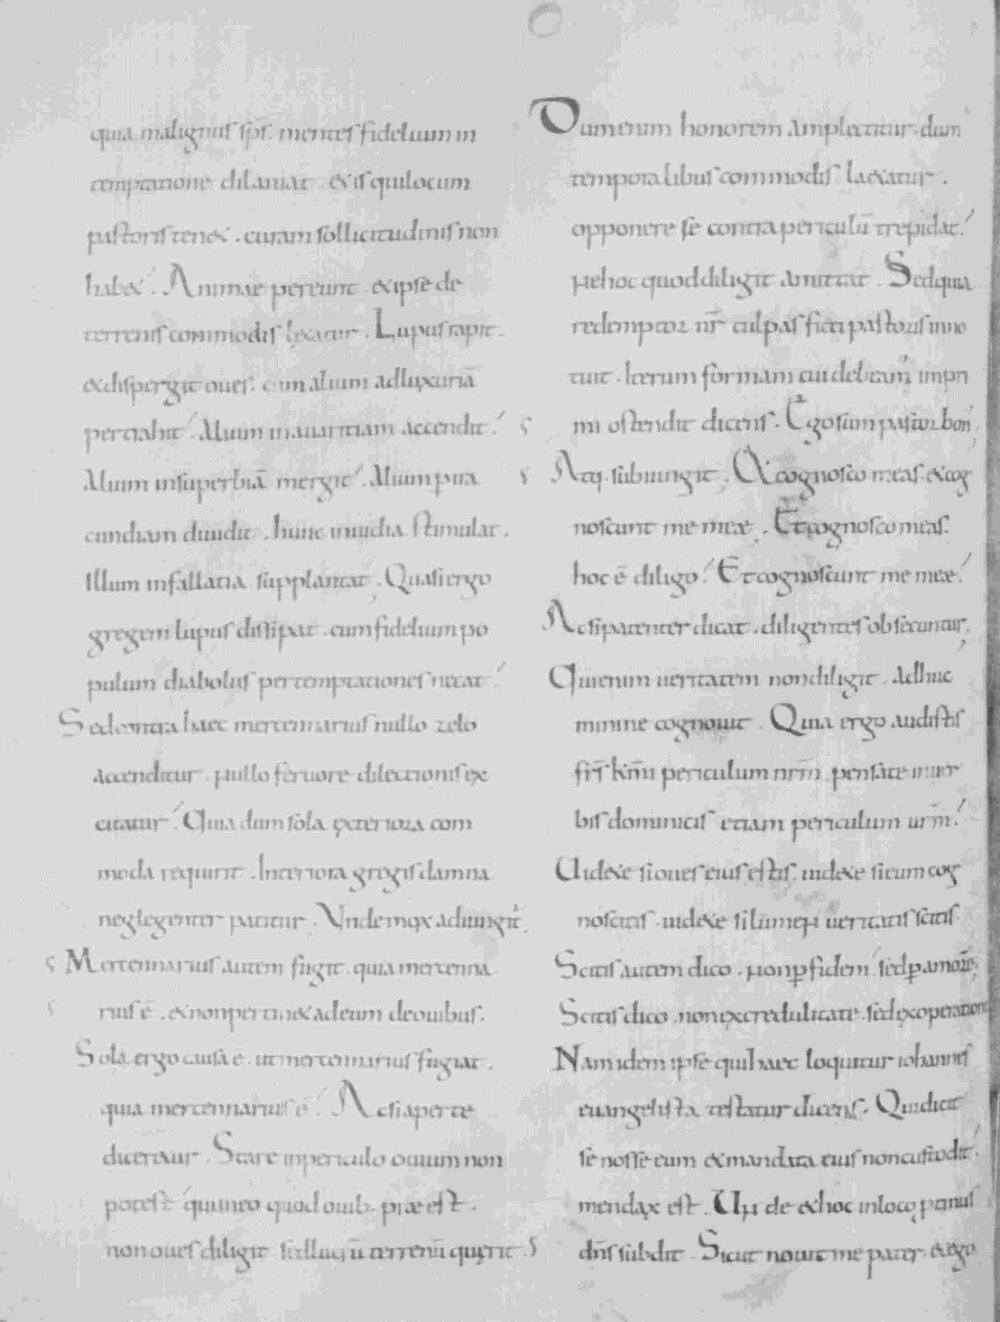 quia malignus sp̄s. mentes fidelium in
temptatione dilaniat. & is qui locum
pastoris ten&. curam sollicitudinis non
hab&. Animae pereunt. & ipse de
terrenis commodis l&atur. Lupus rapit.
& dispergit oues. cum alium ad luxuriā
pertrahit. Alium in auaritiam accendit.
Alium in superbiā mergit. Alium p ira
cundiam diuidit. hunc inuidia stimulat.
Illum in fallatia supplantat. Quasi ergo
gregem lupus dissipat. cum fidelium po
pulum diabolus per temptationes necat.
Sed contra haec mercennarius nullo zelo
accenditur. Nullo feruore dilectionis ex
citatur. Quia dum sola exteriora com
moda requirit. Interiora gregis damna
neglegenter patitur. Vnde mox adiungit.
Mercennarius autem fugit. quia mercenna
rius ē. & non pertin& ad eum de ouibus.
Sola ergo causa ē. ut mercennarius fugiat.
quia mercennarius ē. Ac si aperte
dicer&ur. Stare in periculo ouium non
potest qui in eo quod ouib. prae est.
non oues diligit sed lucrū terrenū quęrit.
Dum enim honorem amplectitur. dum
temporalibus commodis la&atur.
opponere se contra periculū trepidat.
Ne hoc quod diligit amittat. Sed quia
redemptor nr̄ culpas ficti pastoris inno
tuit. Iterum formam cui debeam' impri
mi ostendit dicens. Ego sum pastor bon'
Atq. subiungit. & cognosco meas. & cog
noscunt me meae. Et cognosco meas.
hoc ē diligo. Et cognoscunt me meae.
Ac si patenter dicat. diligentes obsecuntur.
Qui enim ueritatem non diligit. Adhuc
minime cognouit. Quia ergo audistis
fr̄s k̄mi periculum nr̄m. pensate in uer
bis dominicis etiam periculum ur̄m.
Uid&e si oues eius estis. uid&e si eum cog
noscitis. uid&e si lumen ueritatis scitis.
Scitis autem dico. non p fidem. sed p amorē.
Scitis dico. non ex credulitate. sed ex operatione
Nam idem ipse qui haec loquitur iohannes
euangelista testatur dicens. Qui dicit
se nosse eum & mandata eius non custodit.
mendax est. Unde & hoc in loco protinus
dn̄s subdit. Sicut nouit me pater. & ego